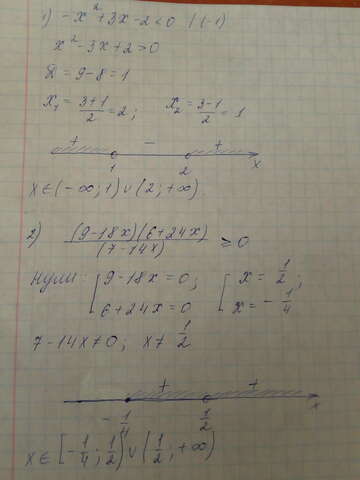 1) -x²+3x-2<0 /(-1)
x²-3x+2>0
D=9-8=1
x₁=(3+1)/2=2; x₂=(3-1)/2=1
+ - +
1 2 x
x∈(-∞;1)∪(2;+∞).
2) (9-18x)(6+24x)/(7-14x) ≥0
нули: [9-18x=0; [x=1/2;
[6+24x=0 [x=-1/4
7-14x≠0; x≠1/2
+ +
-1/4 1/2 x
x∈[-1/4;1/2)∪(1/2;+∞)